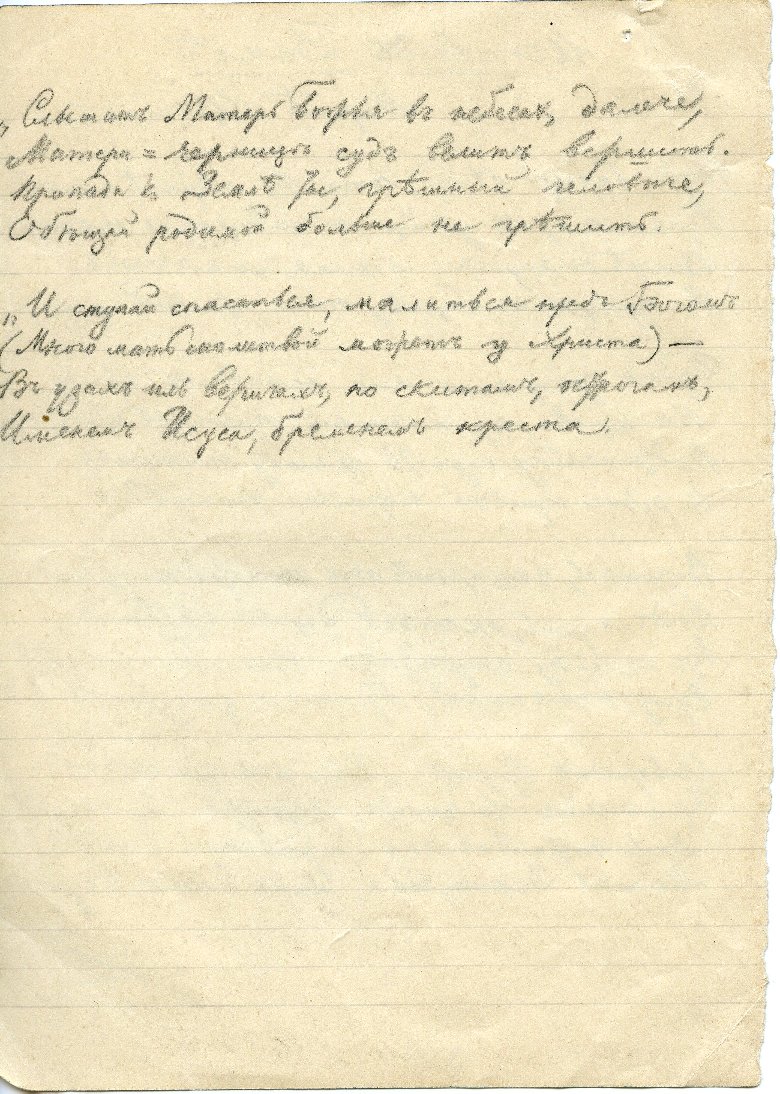 „Слышитъ Матерь Божья въ небесахъ, далече,
Матери = черницѣ судъ велитъ вершить.
Припади къ Землѣ ты, грѣшный человѣче,
Обѣщай родимой больше не грѣшить.
„И ступай спасаться, малиться предъ Богомъ
(Много мать молитвой можетъ у Христа) —
Въ узахъ иль веригахъ, по скитамъ, порогамъ,
Именемъ Исуса, бременемъ креста.